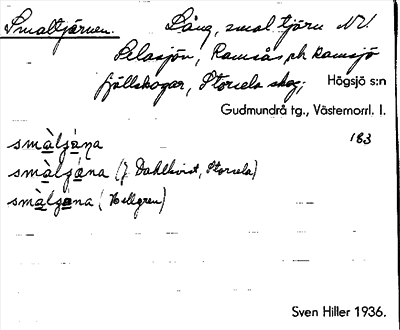 Smaltjärnen. Lång, smal tjärn NV.
Selasjön, Ramsås och Ramsjö
fjällskogar, Storsela skog; Högsjö s:n
Gudmundrå tg., Västernorrl. l.
smàlʒǻna 183
smàlʒána (J. Dahlkvist, Storsela)
smàlʒana (Hellgren)
Sven Hiller 1936.